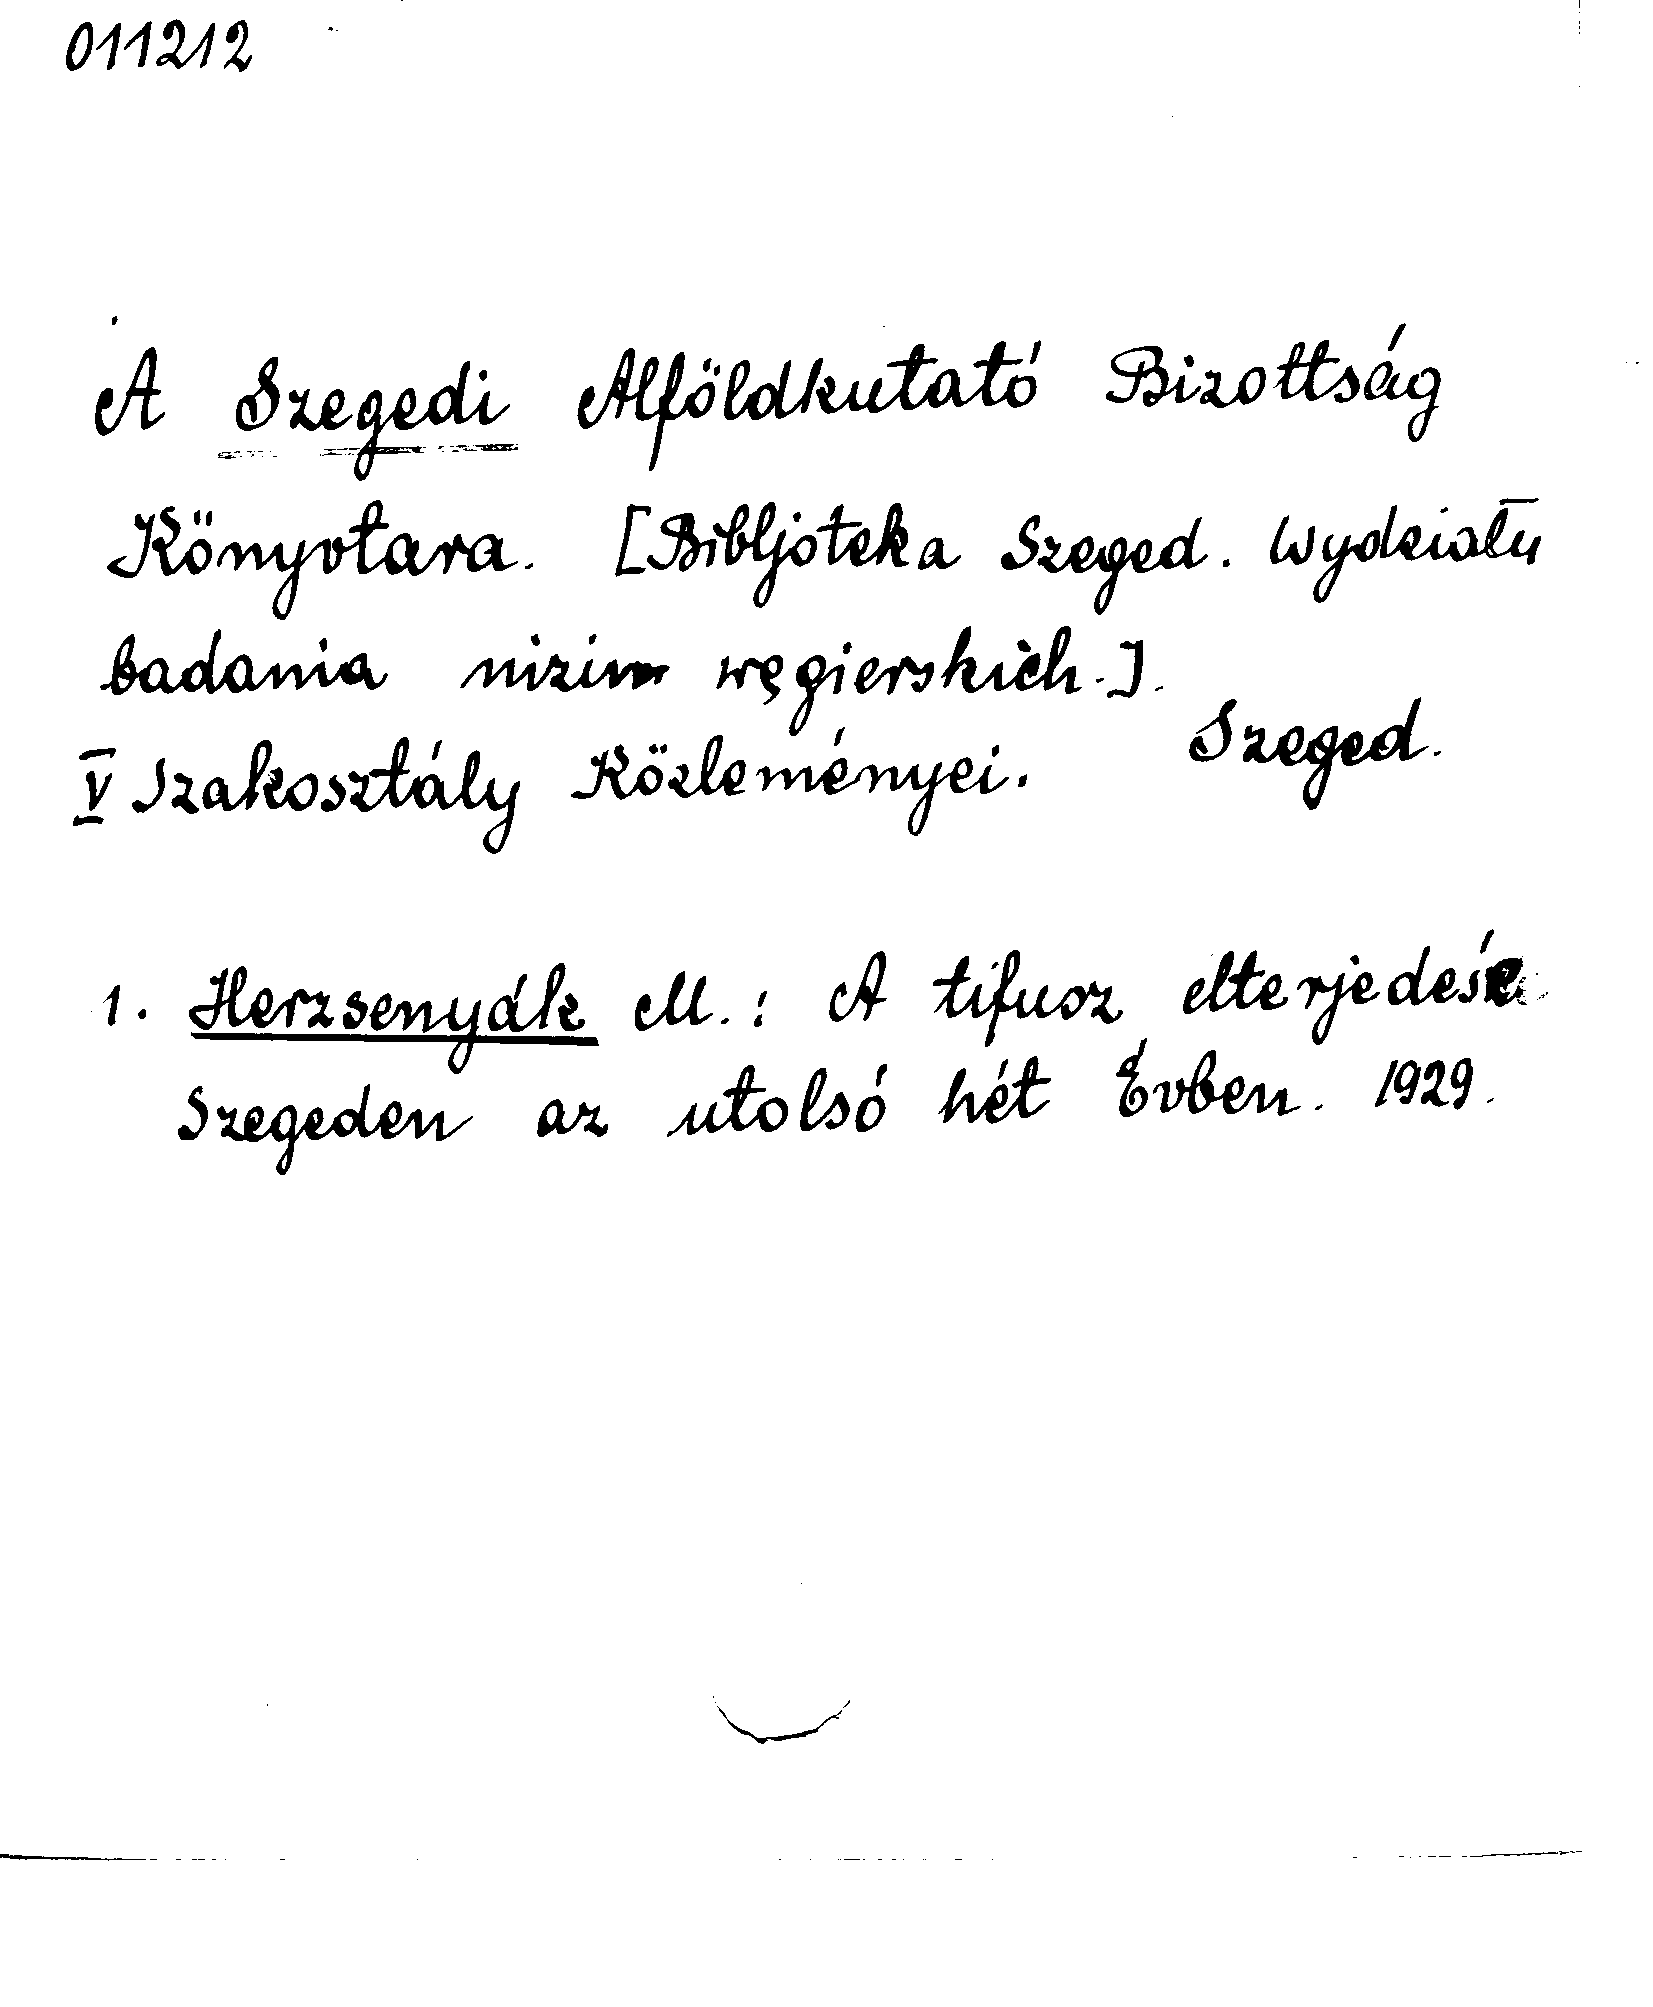 011212
A Szegedi Alföldkutató Bizottság
Könyvtara. [Bibljoteka Szeged. Wydziału
badania nizin węgierskich.].
Szeged.
V Szakosztály Közleményei.
1. Herzsenyák M.: A tifusz elterjedése
Szegeden az utolsó hét Évben. 1929.